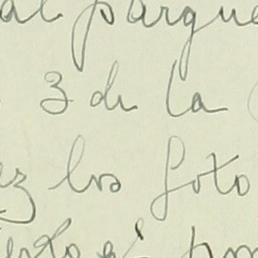 al parque
3 de la
ez los foto